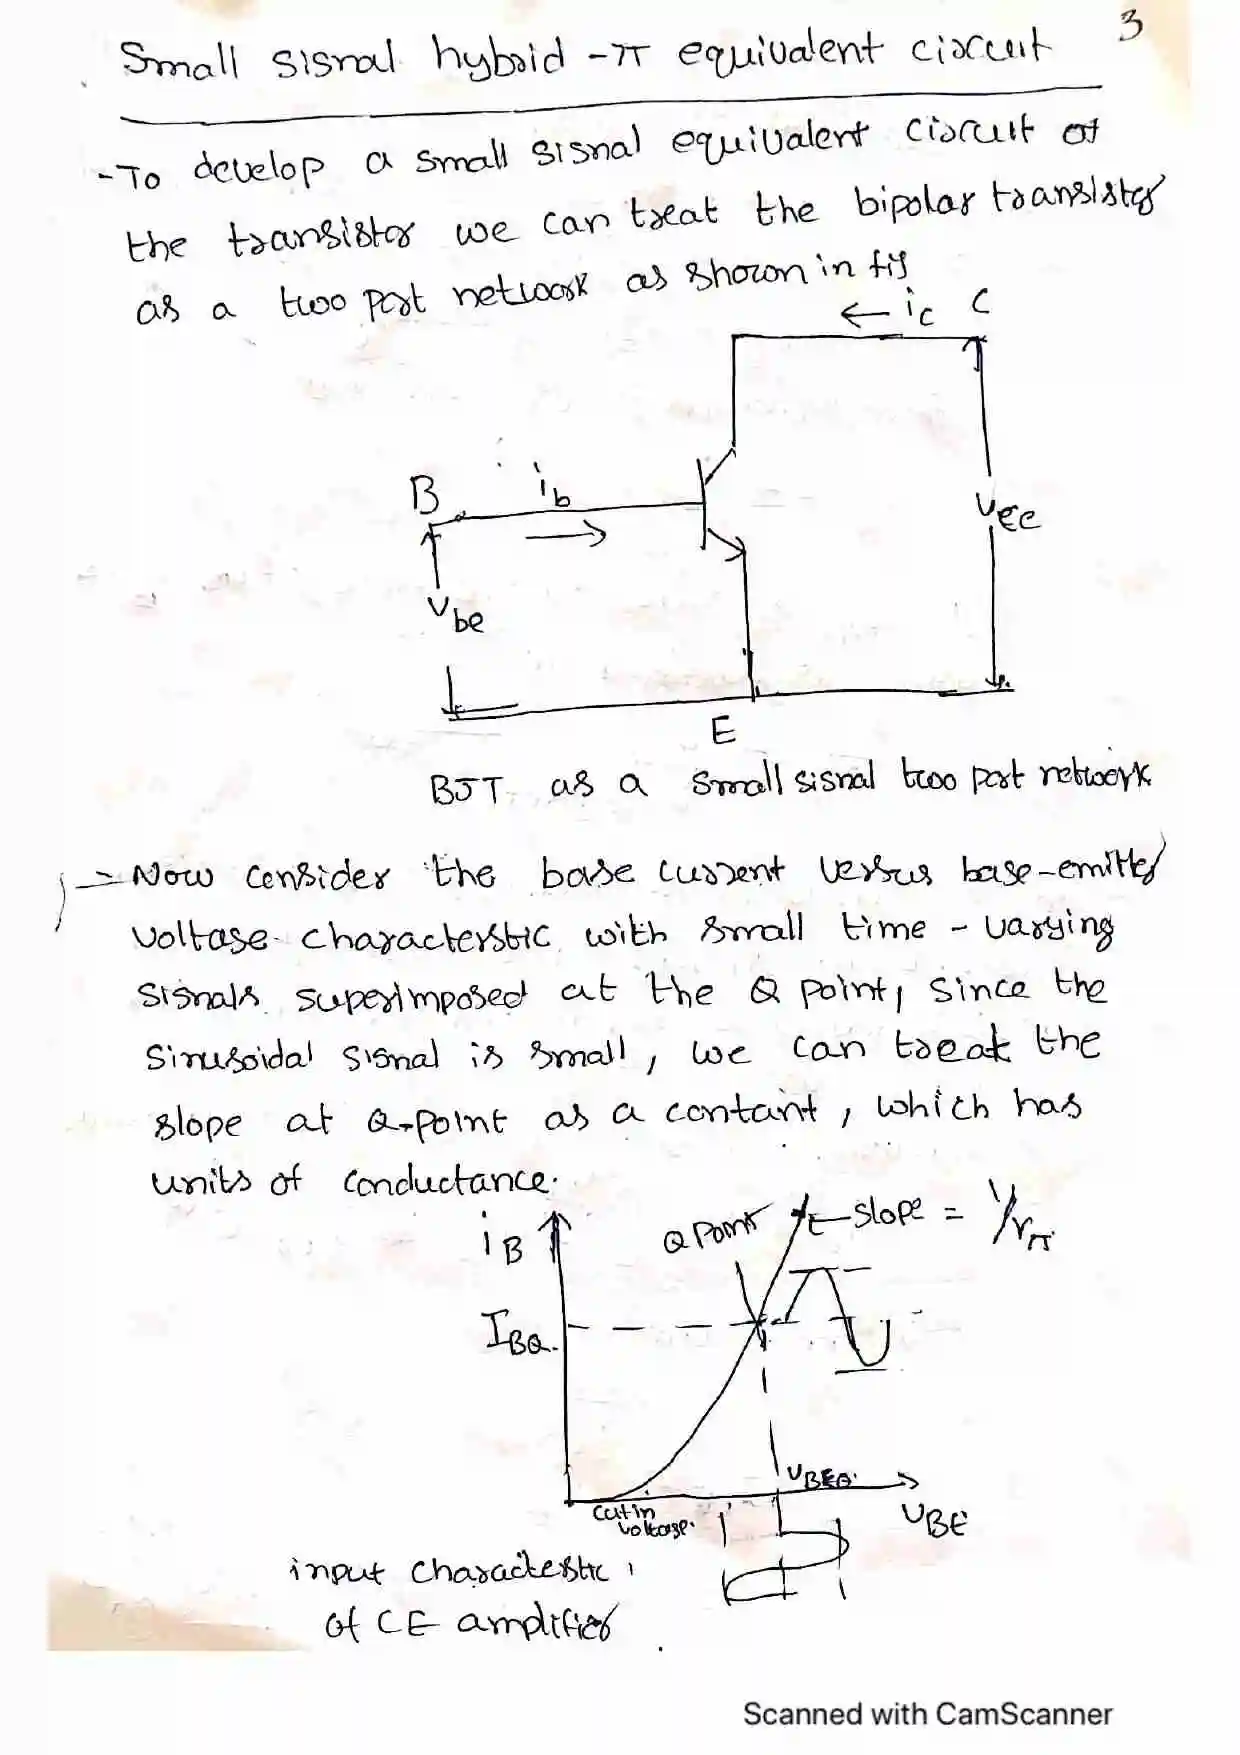 3
Small signal hybrid -π equivalent circuit
- To develop a small signal equivalent circuit of
the transistor we can treat the bipolar transistor
as a two port network as shown in fig
← ic C
B ib
Vce
Vbe
E
BJT as a small signal two port network
- Now consider the base current versus base-emitter
voltage characterstic with small time - varying
signals superimposed at the Q point, since the
sinusoidal signal is small, we can treat the
slope at Q-point as a contant, which has
units of conductance.
iB Q Point ← slope = 1/rπ
IBQ
VBEQ
cutin
voltage
VBE
input characterstic
of CE amplifier
Scanned with CamScanner